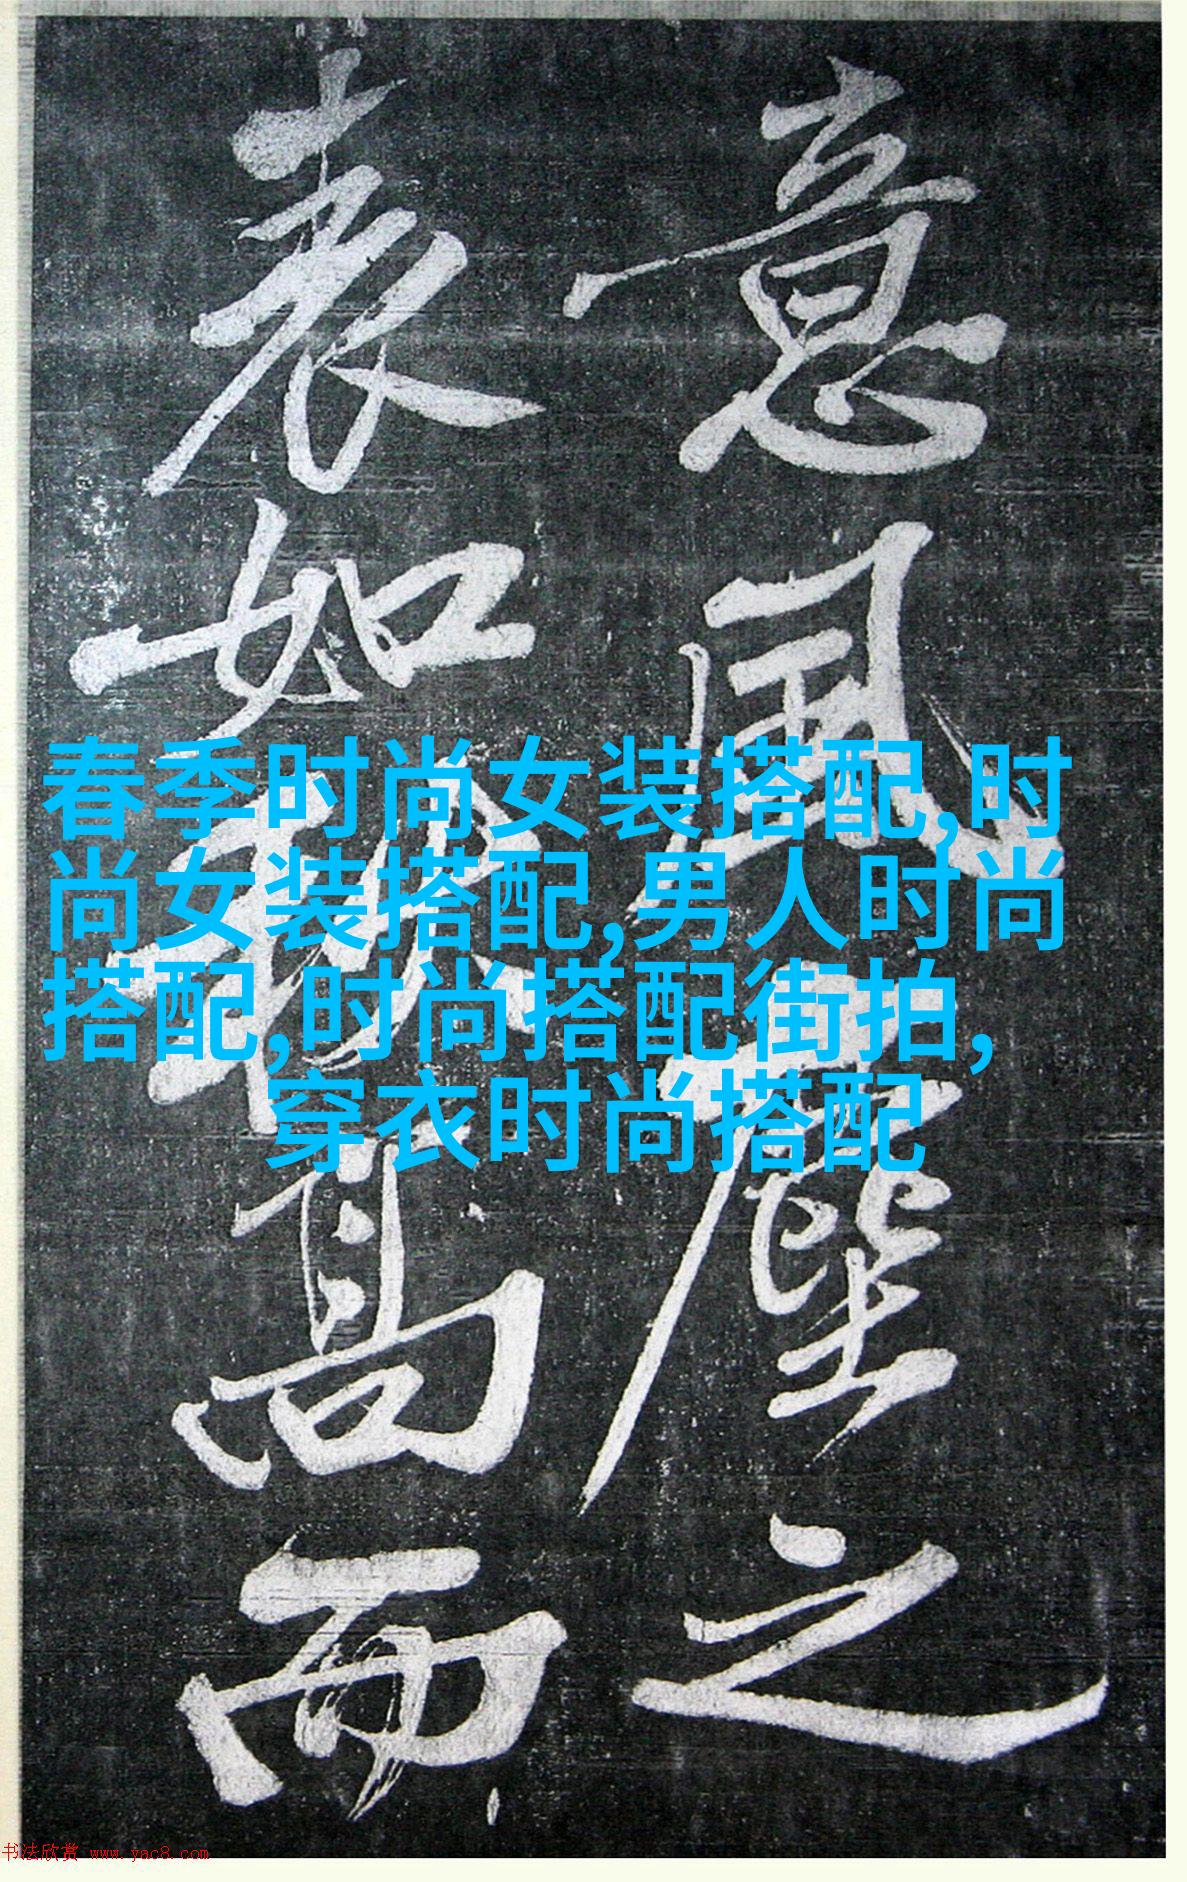 意風塵之
表如高而
春季时尚女装搭配,时
尚女装搭配,男人时尚
搭配,时尚搭配街拍,
穿衣时尚搭配
书法欣赏 www.yac8.com